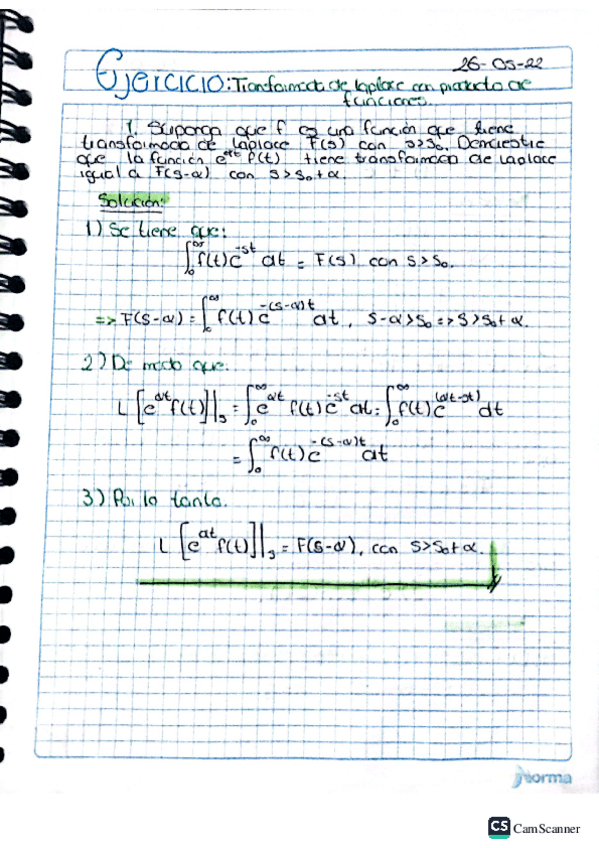 26-05-22
Ejercicio: Transformada de laplace con producto de
funciones.
1. Suponga que f es una función que tiene
transformada de laplace F(s) con s>s₀. Demuestre
que la función e^αt f(t) tiene transformada de laplace
igual a F(s-α) con s>s₀+α.
Solución:
1) Se tiene que:
∫₀^∞ f(t)e^-st dt = F(s) con s>s₀.
=> F(s-α) = ∫₀^∞ f(t)e^-(s-α)t dt, s-α>s₀ => s>s₀+α.
2) De modo que.
L[e^αt f(t)]|s = ∫₀^∞ e^αt f(t)e^-st dt = ∫₀^∞ f(t)e^(αt-st) dt
= ∫₀^∞ f(t)e^-(s-α)t dt
3) Por lo tanto.
L[e^αt f(t)]|s = F(s-α), con s>s₀+α.
norma
CS CamScanner